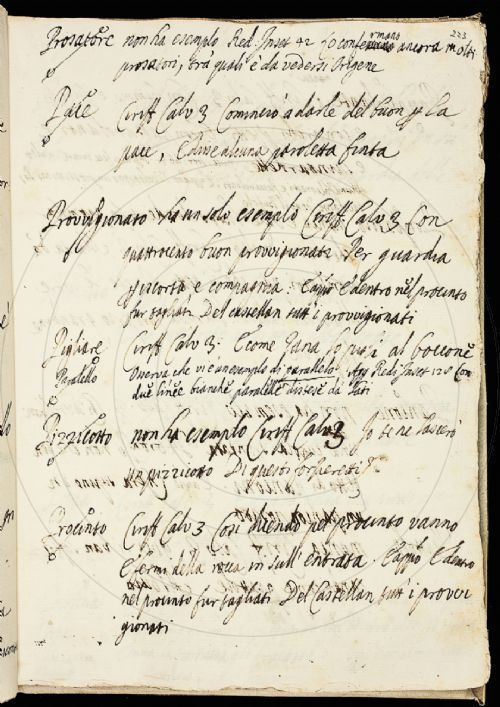 223
Prosatore non ha esempio Red. Inset 42 Io confermano ancora molti
prosatori, tra quali è da vedersi Origene
Pace Ciriff Calv 3 Cominciò a darle del buon p la
pace, E dirle alcuna paroletta finta
Provvigionato ha un solo esempio Ciriff. Calv 3 Con
quattrocento buon provvigionati Per guardia
iscorta e compagnia. E drento nel procinto
fur tagliati Del castellan tutt i provvigionati
Pigliare Ciriff Calv 3. E come Gana lo pigli al boccone
Paralello Osserva che vi è un esempio di parallelo Red Inset 128 Con
due linee bianche paralelle distese da lati
Pizzicotto non ha esempio Ciriff Calv 3 Io te ne lascerò
un pizzicotto Di questi
Procinto Ciriff Calv 3 Così pel procinto vanno
E fermi della rocca in sull'entrata. E drento
nel procinto fur tagliati Del Castellan tutt i provvi
gionati